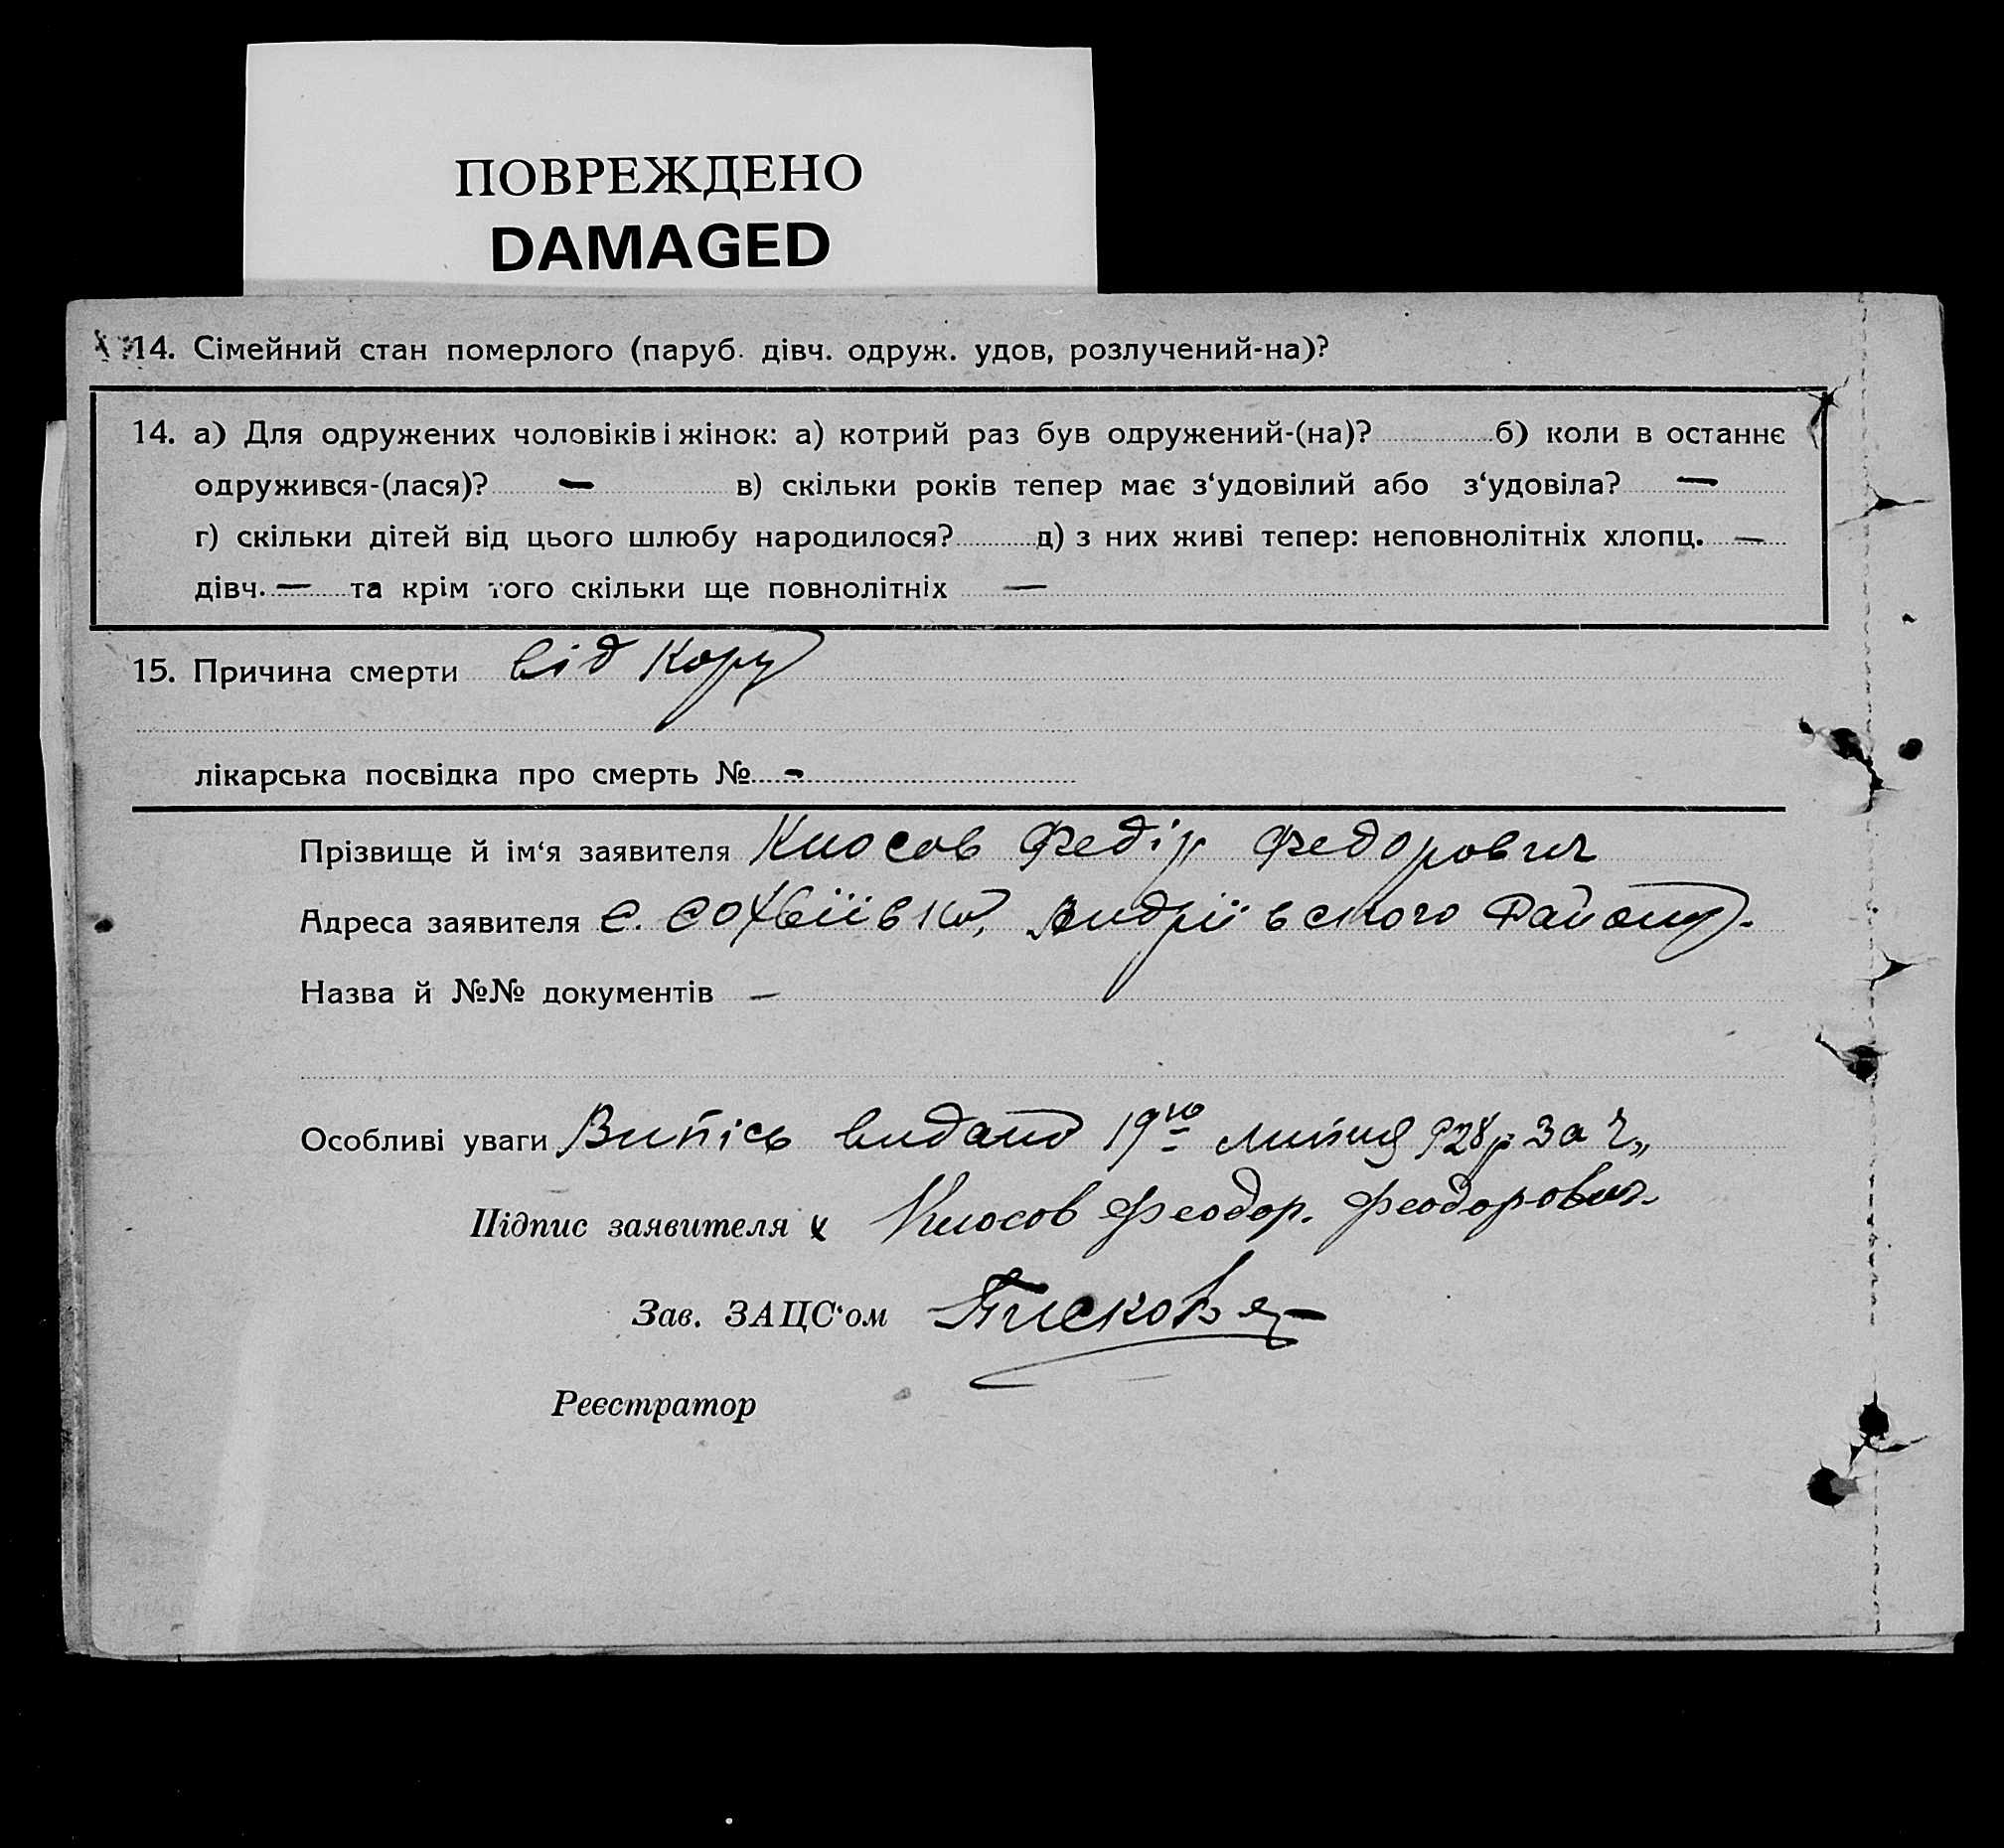 ПОВРЕЖДЕНО
DAMAGED
14. Сімейний стан померлого (паруб. дівч. одруж. удов, розлучений-на)?
14. а) Для одружених чоловіків і жінок: а) котрий раз був одружений-(на)? б) коли в останнє
одружився-(лася)? — в) скільки років тепер має з‘удовілий або з‘удовіла? —
г) скільки дітей від цього шлюбу народилося? д) з них живі тепер: неповнолітніх хлопц. —
дівч. — та крім того скільки ще повнолітніх —
15. Причина смерти від кору
лікарська посвідка про смерть № -
Прізвище й ім‘я заявителя Кносов Федір Федорович
Адреса заявителя С. Софвіївка, Андріївського Району.
Назва й №№ документів —
Особливі уваги Випісь видано 19го липня 928р за ч„
Підпис заявителя х Кносов Феодор. Феодорович.
Зав. ЗАЦС‘ом
Реєстратор